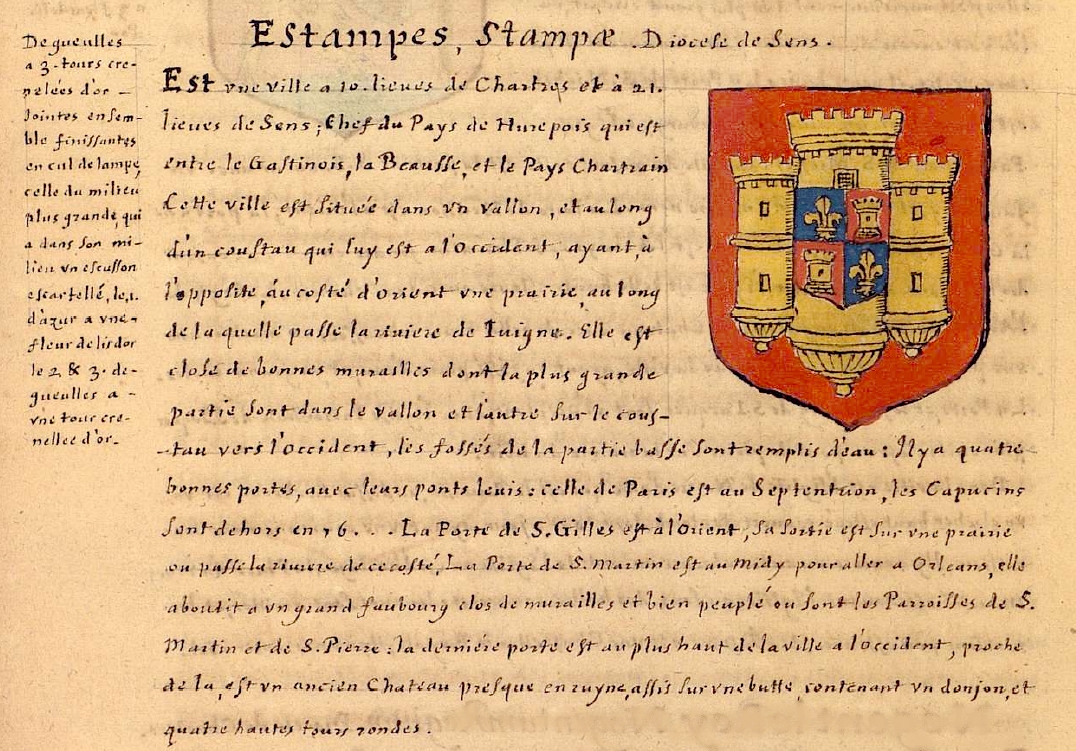 Estampes, Stampæ. Diocese de Sens.
De gueulles
a 3. tours cre-
nelées d'or -
Jointes ensem-
ble finissantes
en cul de lampe,
celle du milieu
plus grande, qui
a dans son mi-
lieu vn escusson
escartellé, le 1.
d'azur a vne-
fleur de lis d'or
le 2 & 3. de-
gueulles a -
vne tour cre-
nellee d'or-
Est vne ville a 10. lieues de Chartres et à 21.
lieues de Sens; Chef du Pays de Hurepois qui est
entre le Gastinois, la Beausse, et le Pays Chartrain
Cette ville est située dans vn vallon, et au long
d'un coustau qui luy est a l'occident, ayant, à
l'opposite, au costé d'orient vne prairie, au long
de la quelle passe la riuiere de Iuigne. Elle est
close de bonnes murailles dont la plus grande
partie sont dans le vallon et l'autre sur le cous-
-tau vers l'occident, les fossés de la partie basse sont remplis d'eau: Il y a quatre
bonnes portes, auec leurs ponts leuis: celle de Paris est au Septentrion, les Capucins
sont dehors en 16. . . La Porte de S. Gilles est à l'Orient, sa sortie est sur vne prairie
ou passe la riuiere de ce costé, La Porte de S. Martin est au Midy pour aller a Orleans, elle
aboutit a vn grand faubourg clos de murailles et bien peuplé ou sont les Parroisses de S.
Martin et de S. Pierre: la derniére porte est au plus haut de la ville a l'occident, proche
de la, est vn ancien Chateau presque en ruyne, assis sur vne butte, contenant vn donjon, et
quatre hautes tours rondes.